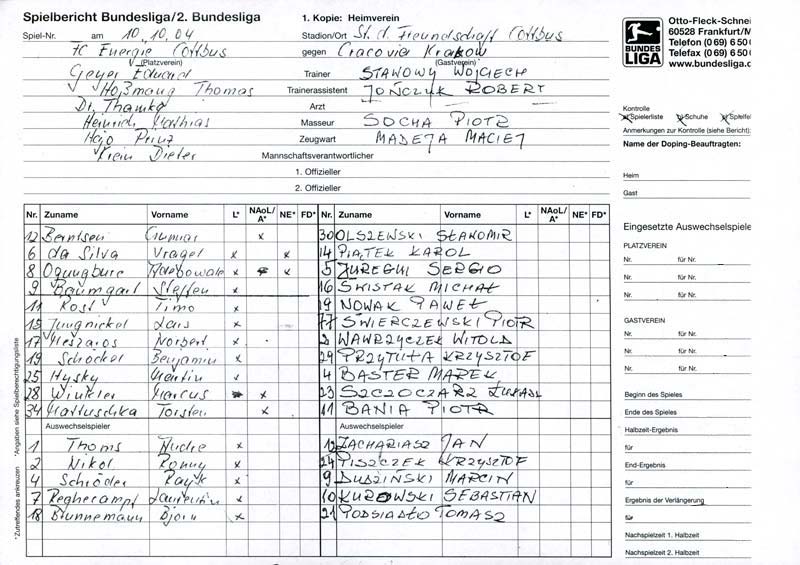 Spielbericht Bundesliga/2. Bundesliga
1. Kopie: Heimverein
Spiel-Nr. am 10.10.04 Stadion/Ort St. d. Freundschaft Cottbus
FC Energie Cottbus gegen Cracovia Krakow
(Platzverein) (Gastverein)
Geyer Eduard Trainer STAWOWY WOJCIECH
Hoßmang Thomas Trainerassistent JOŃCZYK ROBERT
Dr. Thamke Arzt
Heinrich Mathias Masseur SOCHA PIOTR
Hajo Prinz Zeugwart MADEJA MACIEJ
Krein Dieter Mannschaftsverantwortlicher
1. Offizieller
2. Offizieller
Nr. Zuname Vorname L* NAoL/A* NE* FD* Nr. Zuname Vorname L* NAoL/A* NE* FD*
12 Berntsen Gunnar x 30 OLSZEWSKI SŁAWOMIR
6 da Silva Vragel x x 14 PIĄTEK KAROL
8 Ogungbure Adebowale x x 5 JUREGUI SERGIO
9 Baumgart Steffen x 16 ŚWISTAK MICHAŁ
11 Rost Timo x 19 NOWAK PAWEŁ
15 Jungnickel Lars x 77 ŚWIERCZEWSKI PIOTR
17 Meszaros Norbert x 2 WAWRZYCZEK WITOLD
19 Schöckel Benjamin x 29 PRZYTUŁA KRZYSZTOF
25 Hysky Martin x 4 BASTER MAREK
28 Winkler Marcus x 23 SZCZOCZARZ ŁUKASZ
34 Mattuschka Torsten x 11 BANIA PIOTR
Auswechselspieler Auswechselspieler
1 Thoms Andre x 12 ZACHARIASZ JAN
2 Nikol Ronny x 24 PISZCZEK KRZYSZTOF
4 Schröder Rayk x 9 DUDZIŃSKI MARCIN
7 Reghecampf Laurentiu x 10 KUROWSKI SEBASTIAN
18 Brunnemann Björn x 21 PODSIADŁO TOMASZ
*Zutreffendes ankreuzen *Angaben siehe Spielberechtigungsliste
BUNDESLIGA
Otto-Fleck-Schnei
60528 Frankfurt/M
Telefon (0 69) 6 50
Telefax (0 69) 6 50
www.bundesliga.d
Kontrolle
x Spielerliste x Schuhe x Spielfel
Anmerkungen zur Kontrolle (siehe Bericht):
Name der Doping-Beauftragten:
Heim
Gast
Eingesetzte Auswechselspiele
PLATZVEREIN
Nr. für Nr.
Nr. für Nr.
Nr. für Nr.
GASTVEREIN
Nr. für Nr.
Nr. für Nr.
Nr. für Nr.
Beginn des Spieles
Ende des Spieles
Halbzeit-Ergebnis
für
End-Ergebnis
für
Ergebnis der Verlängerung
für
Nachspielzeit 1. Halbzeit
Nachspielzeit 2. Halbzeit